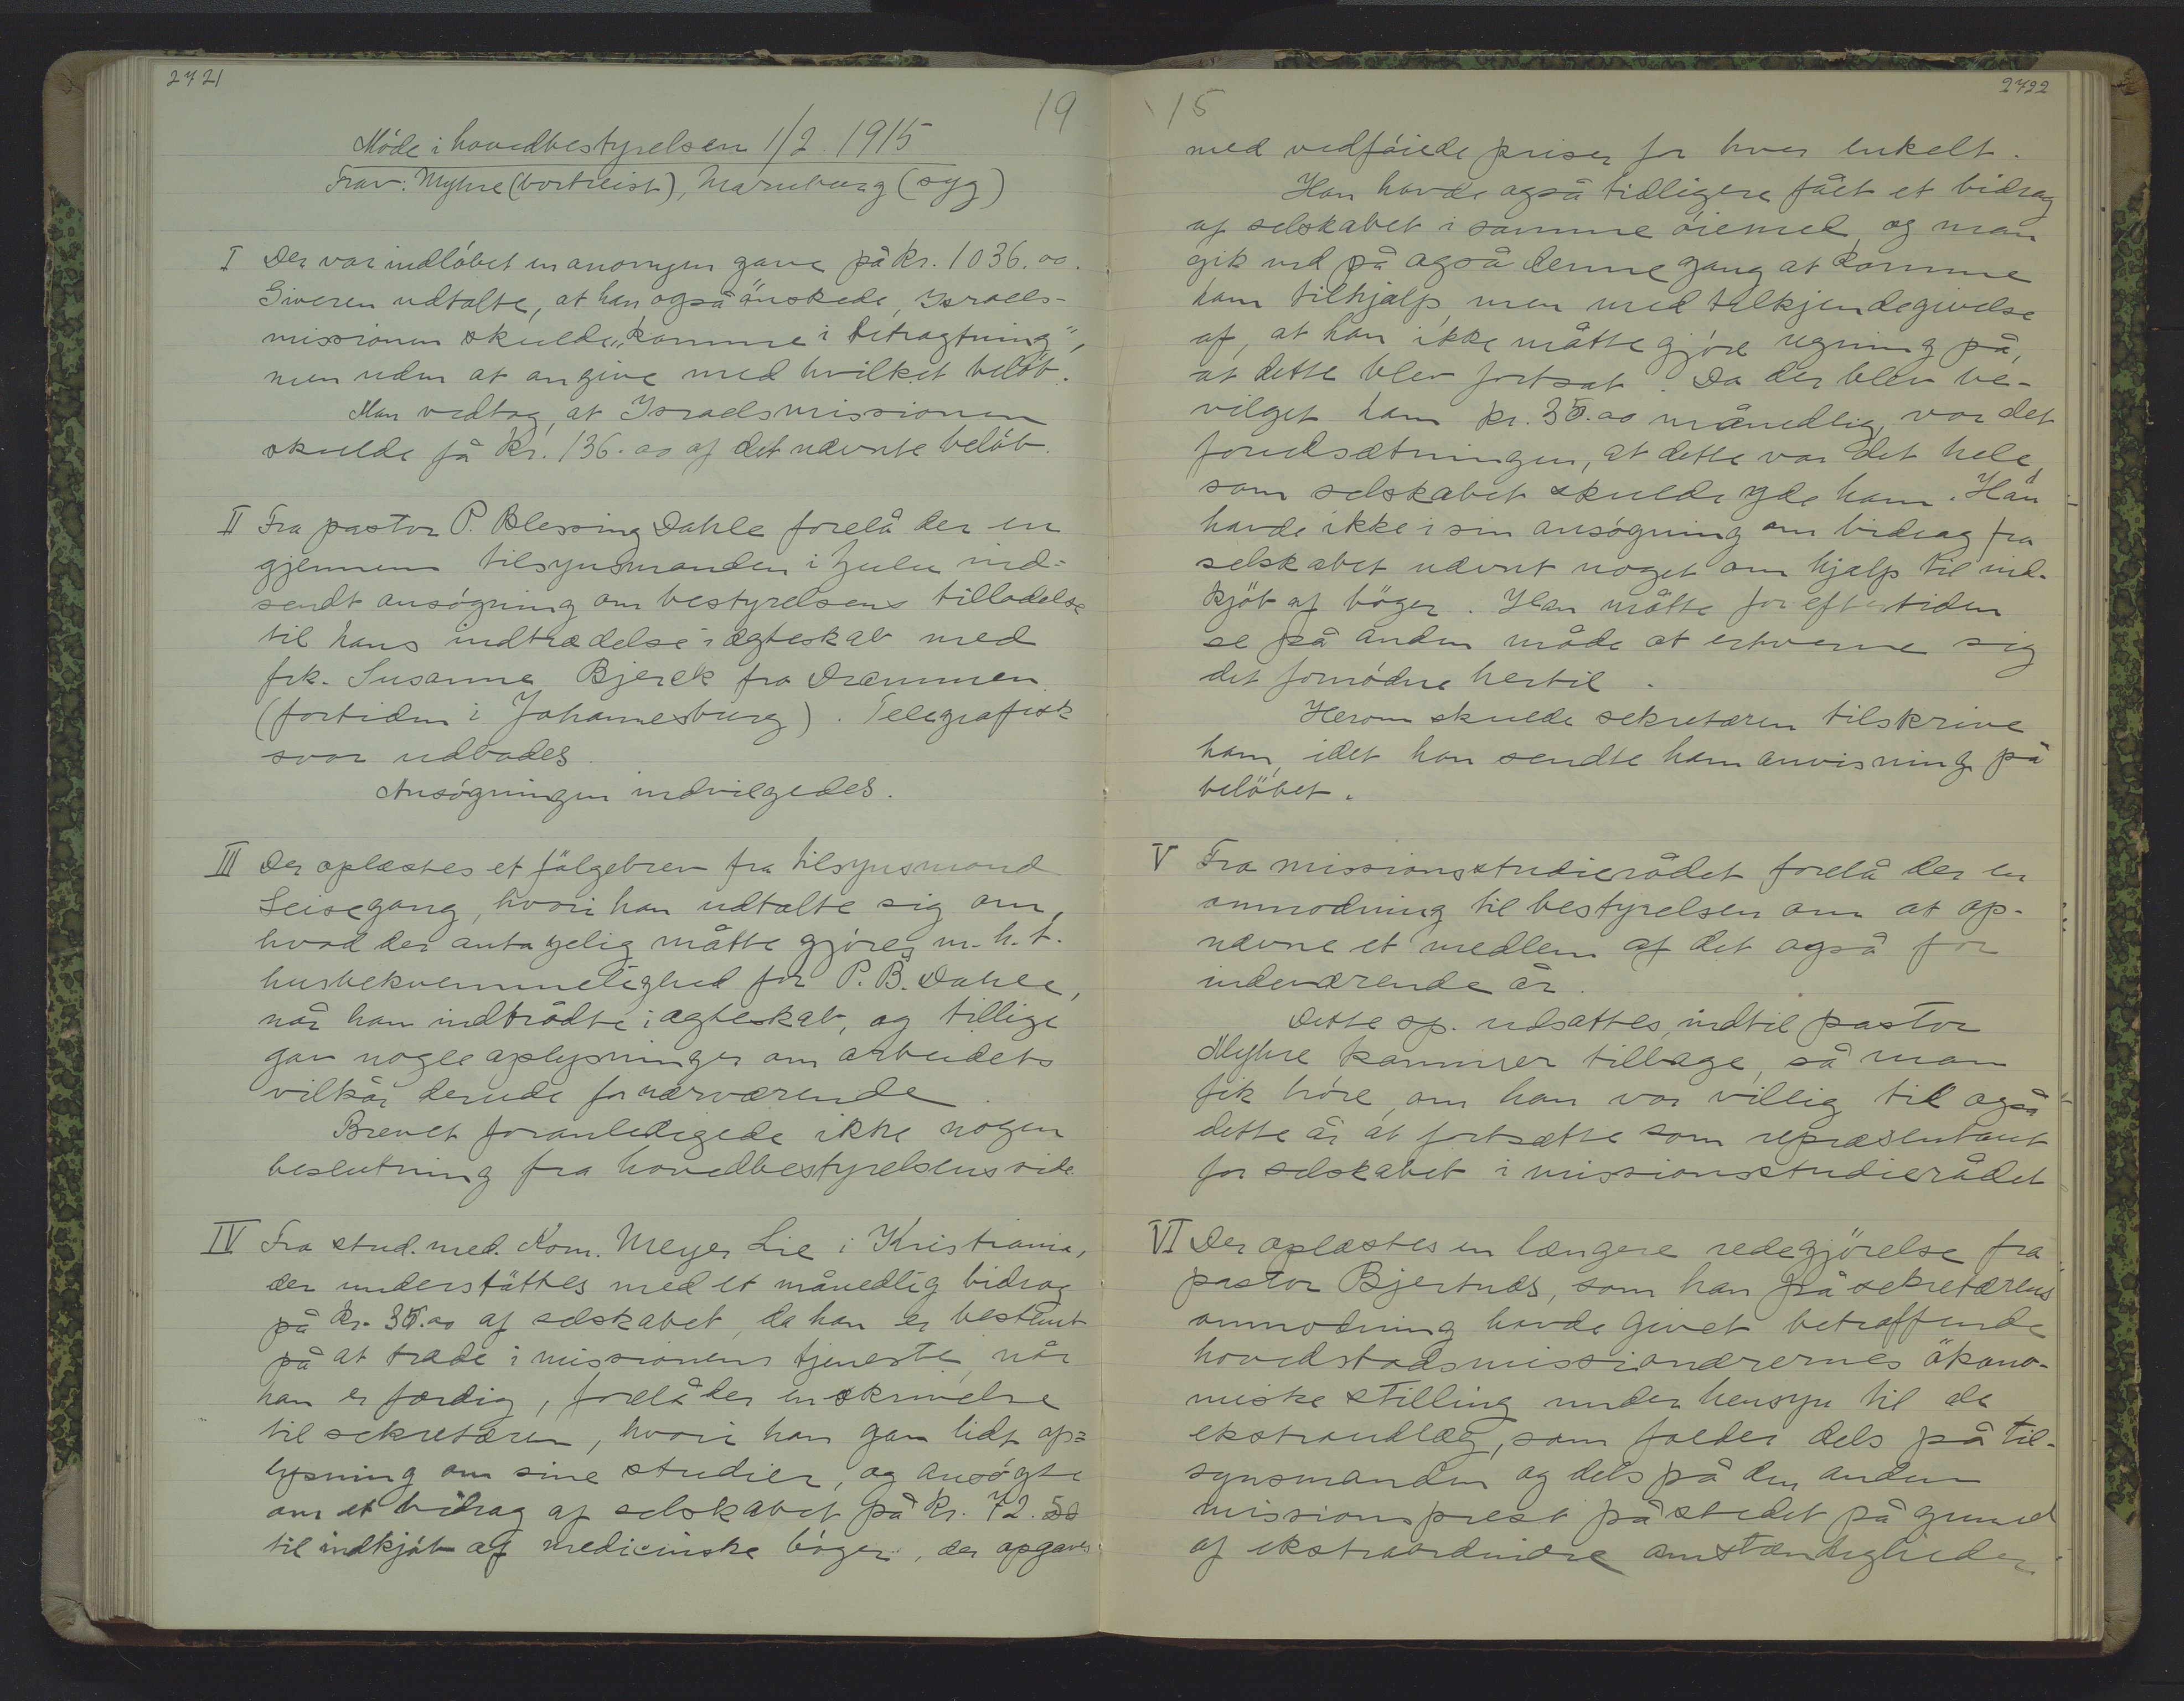 2721
19
Møde i hovedbestyrelsen 1/2. 1915
Frav: Myhre (bortreist), Marnburg (syg)
I Der var indløbet en anonym gave på kr. 1036.00.
Giveren udtalte, at han også ønskede, Israels-
missionen skulde "komme i betragtning",
men uden at angive med hvilket beløb.
Man vedtog, at Israelsmissionen
skulde få kr. 136.00 af det nævnte beløb.
II Fra pastor P. Blessing Dahle forelå der en
gjennem tilsynsmanden i Zulu ind-
sendt ansøgning om bestyrelsens tilladelse
til hans indtrædelse i ægteskab med
frk. Susanna Bjerck fra Drammen
(fortiden i Johannesburg). Telegrafisk
svar udbades.
Ansøgningen indvilgedes.
III Der oplæstes et følgebrev fra tilsynsmand
Leisegang, hvori han udtalte sig om,
hvad der antagelig måtte gjøres m.h.t.
husbekvemmelighed for P. B. Dahle,
når han indtrådte i ægteskab, og tillige
gav nogle oplysninger om arbeidets
vilkår derude for nærværende.
Brevet foranledigede ikke nogen
beslutning fra hovedbestyrelsens side.
IV Fra stud. med. Kom. Meyer Lie i Kristiania,
der understøttes med et månedlig bidrag
på kr. 35.00 af selskabet, da han er bestemt
på at træde i missionens tjeneste, når
han er færdig, forelå der en skrivelse
til sekretæren, hvori han gav lidt op-
lysning om sine studier, og ansøgte
om et bidrag af selskabet på kr. 72.50
til indkjøb af medicinske bøger, der opgaves
2722
15
med vedføiede priser for hver enkelt.
Han havde også tidligere fået et bidrag
af selskabet i samme øiemed, og man
gik ind på også denne gang at komme
ham tilhjælp, men med tilkjendegivelse
af, at han ikke måtte gjøre regning på,
at dette blev fortsat. Da der blev be-
vilget ham kr. 35.00 månedlig, var det
forudsætningen, at dette var det hele,
som selskabet skulde yde ham. Han
havde ikke i sin ansøgning om bidrag fra
selskabet nævnt noget om hjælp til ind-
kjøb af bøger. Han måtte for eftertiden
se på anden måde at erhverve sig
det fornødne hertil.
Herom skulde sekretæren tilskrive
ham, idet han sendte ham anvisning på
beløbet.
V Fra missionsstudierådet forelå der en
anmodning til bestyrelsen om at op-
nævne et medlem af det også for
indeværende år.
Dette sp. udsattes, indtil pastor
Myhre kommer tilbage, så man
fik høre, om han var villig til også
dette år at fortsætte som repræsentant
for selskabet i missionsstudierådet
VI Der oplæstes en længere redegjørelse fra
pastor Bjertnæs, som han på sekretærens
anmodning havde givet betræffende
hovedstadsmissionærernes økono-
miske stilling under hensyn til de
ekstraudlæg, som falder dels på til-
synsmanden og dels på den anden
missionsprest på stedet på grund
af ekstraordinære omstændigheder